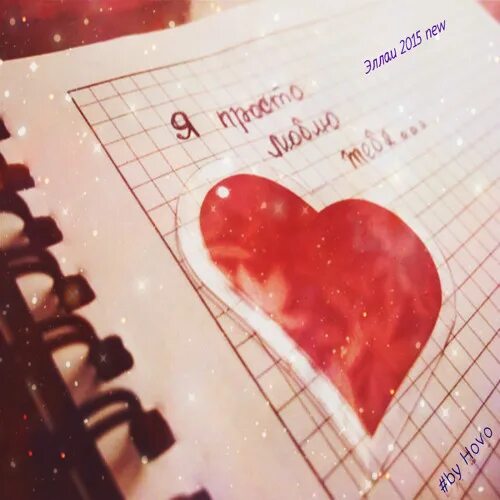 Эллаи 2015 new
Я просто
люблю
тебя...
#by Hovo